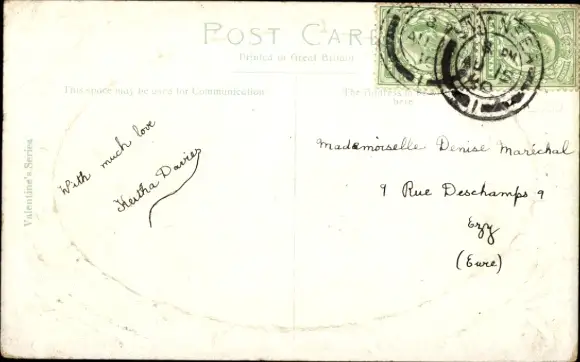 POST CARD
Printed in Great Britain
This space may be used for Communication.
The Address to be
here
Valentine's Series
With much love
Keitha Davies
Mademoiselle Denise Maréchal
9 Rue Deschamps 9
Ezy
(Eure)
8 PM
AU 15